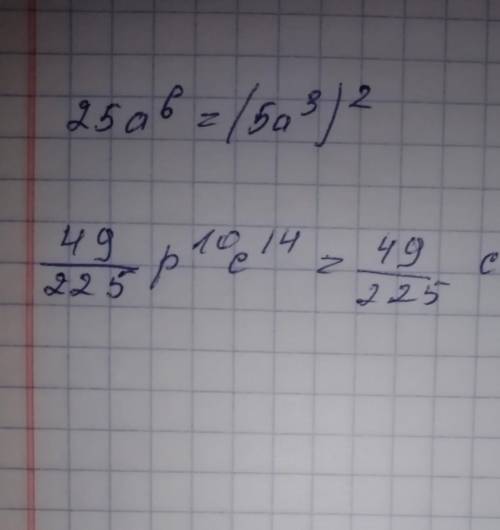 25a⁶ = (5a³)²
49/225 p¹⁰c¹⁴ = 49/225 c